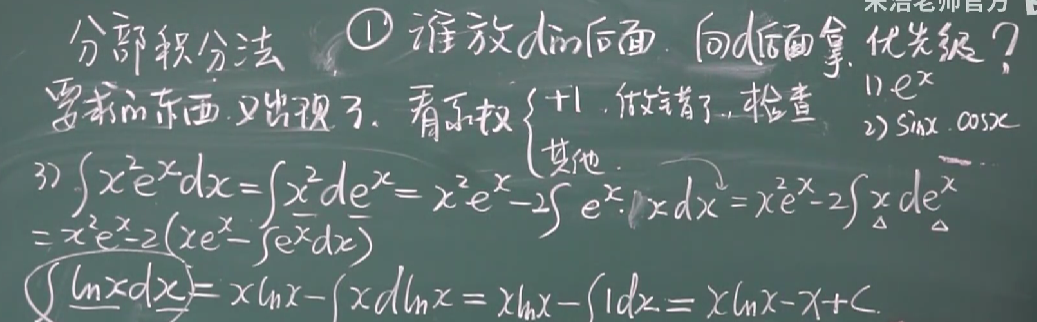 宋浩老师官方
分部积分法 ① 谁放d的后面. 向d后面拿. 优先级?
1) eˣ
要求的东西又出现了. 看系数 { +1. 做错了, 检查
2) sinx. cosx
其他.
3) ∫x²eˣdx = ∫x²deˣ = x²eˣ-2∫eˣ·xdx = x²eˣ-2∫xdeˣ
= x²eˣ-2(xeˣ-∫eˣdx)
∫lnxdx = xlnx-∫xdlnx = xlnx-∫1dx = xlnx-x+C.